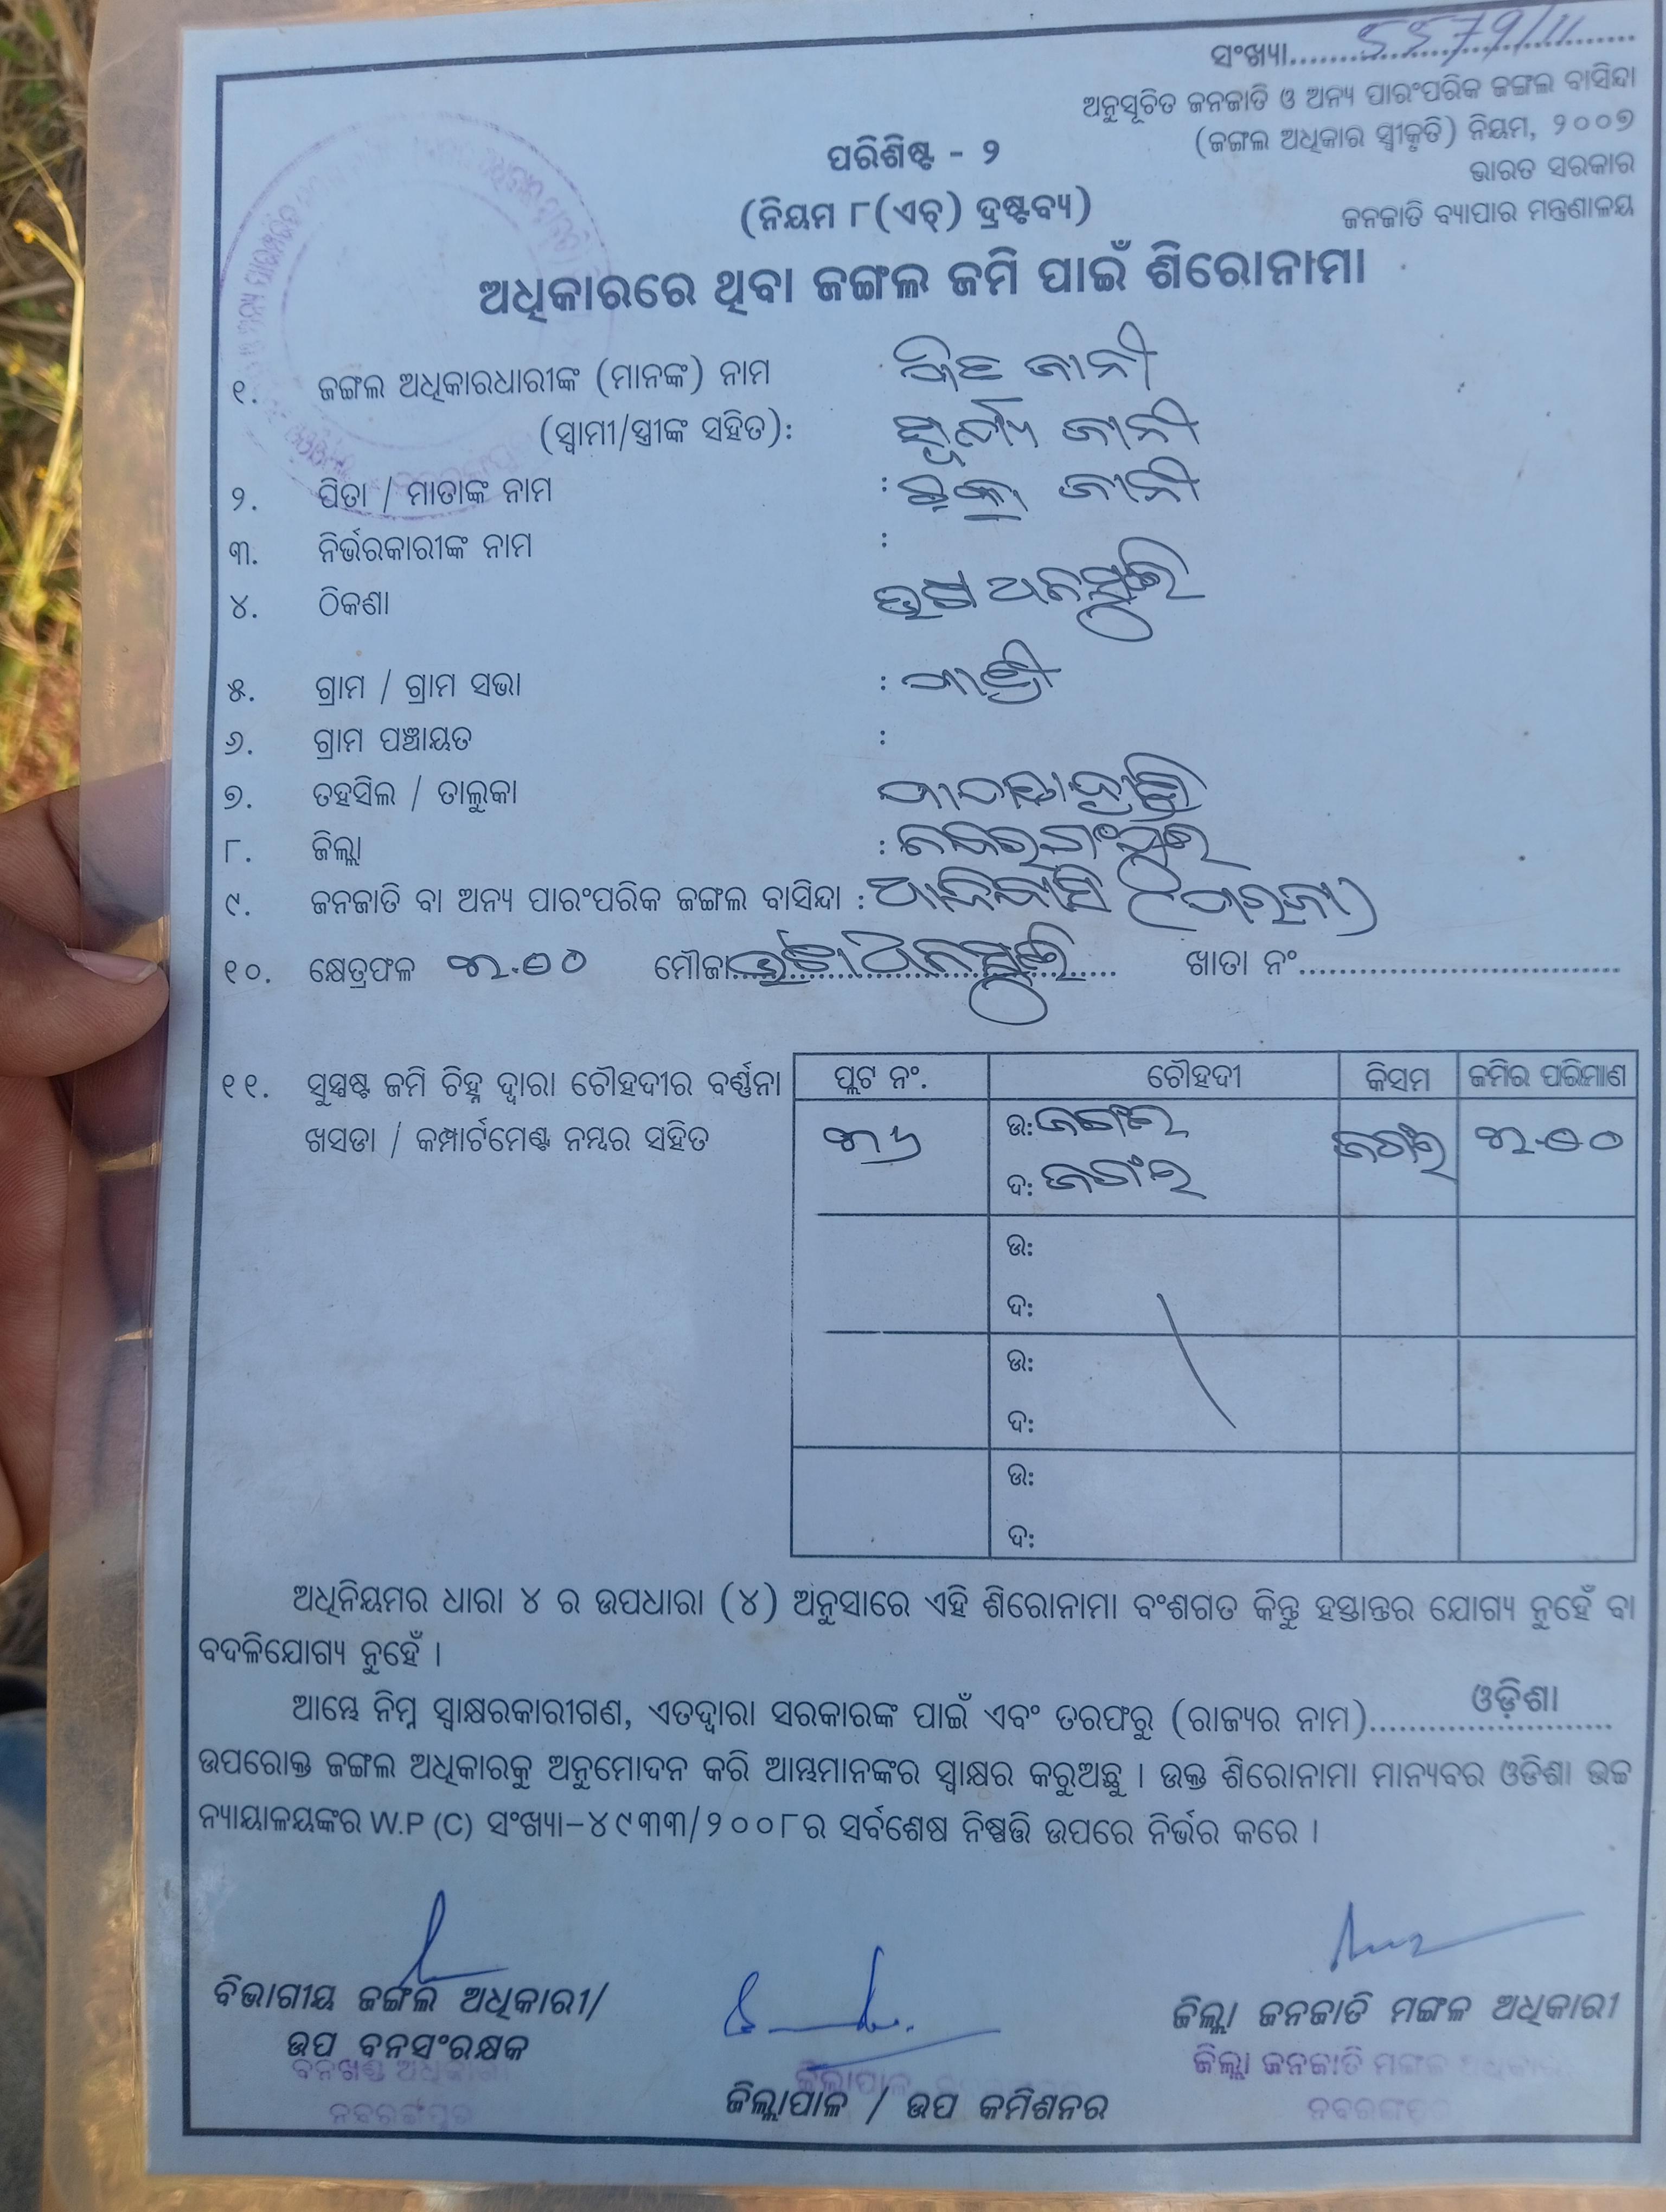 ସଂଖ୍ୟା..........5579/11..........
ଅନୁସୂଚିତ ଜନଜାତି ଓ ଅନ୍ୟ ପାରଂପରିକ ଜଙ୍ଗଲ ବାସିନ୍ଦା
(ଜଙ୍ଗଲ ଅଧିକାର ସ୍ୱୀକୃତି) ନିୟମ, ୨୦୦୭
ଭାରତ ସରକାର
ଜନଜାତି ବ୍ୟାପାର ମନ୍ତ୍ରଣାଳୟ
ପରିଶିଷ୍ଟ - ୨
(ନିୟମ ୮(ଏଚ୍) ଦ୍ରଷ୍ଟବ୍ୟ)
ଅଧିକାରରେ ଥିବା ଜଙ୍ଗଲ ଜମି ପାଇଁ ଶିରୋନାମା
୧. ଜଙ୍ଗଲ ଅଧିକାରଧାରୀଙ୍କ (ମାନଙ୍କ) ନାମ ଜାନୀ
(ସ୍ୱାମୀ/ସ୍ତ୍ରୀଙ୍କ ସହିତ): ଜାନୀ
୨. ପିତା / ମାତାଙ୍କ ନାମ : ଜାନୀ
୩. ନିର୍ଭରକାରୀଙ୍କ ନାମ :
୪. ଠିକଣା
୫. ଗ୍ରାମ / ଗ୍ରାମ ସଭା :
୬. ଗ୍ରାମ ପଞ୍ଚାୟତ :
୭. ତହସିଲ / ତାଲୁକା
୮. ଜିଲ୍ଲା : ନବରଂଗପୁର
୯. ଜନଜାତି ବା ଅନ୍ୟ ପାରଂପରିକ ଜଙ୍ଗଲ ବାସିନ୍ଦା : ଆଦିବାସି (ପରଜା)
୧୦. କ୍ଷେତ୍ରଫଳ ୩.୦୦ ମୌଜା.................... ଖାତା ନଂ..............................
୧୧. ସୁସ୍ପଷ୍ଟ ଜମି ଚିହ୍ନ ଦ୍ୱାରା ଚୌହଦୀର ବର୍ଣ୍ଣନା
ଖସଡା / କମ୍ପାର୍ଟମେଣ୍ଟ ନମ୍ବର ସହିତ
ପ୍ଲଟ ନଂ. ଚୌହଦୀ କିସମ ଜମିର ପରିମାଣ
ଉ: ଜଙ୍ଗଲ ଜଙ୍ଗଲ ୩.୦୦
ଦ: ଜଙ୍ଗଲ
ଉ:
ଦ:
ଉ:
ଦ:
ଉ:
ଦ:
ଅଧିନିୟମର ଧାରା ୪ ର ଉପଧାରା (୪) ଅନୁସାରେ ଏହି ଶିରୋନାମା ବଂଶଗତ କିନ୍ତୁ ହସ୍ତାନ୍ତର ଯୋଗ୍ୟ ନୁହେଁ ବା
ବଦଳିଯୋଗ୍ୟ ନୁହେଁ ।
ଆମ୍ଭେ ନିମ୍ନ ସ୍ୱାକ୍ଷରକାରୀଗଣ, ଏତଦ୍ୱାରା ସରକାରଙ୍କ ପାଇଁ ଏବଂ ତରଫରୁ (ରାଜ୍ୟର ନାମ)..........ଓଡ଼ିଶା..........
ଉପରୋକ୍ତ ଜଙ୍ଗଲ ଅଧିକାରକୁ ଅନୁମୋଦନ କରି ଆମ୍ଭମାନଙ୍କର ସ୍ୱାକ୍ଷର କରୁଅଛୁ । ଉକ୍ତ ଶିରୋନାମା ମାନ୍ୟବର ଓଡିଶା ଉଚ୍ଚ
ନ୍ୟାୟାଳୟଙ୍କର W.P (C) ସଂଖ୍ୟା-୪୯୩୩/୨୦୦୮ର ସର୍ବଶେଷ ନିଷ୍ପତ୍ତି ଉପରେ ନିର୍ଭର କରେ ।
ବିଭାଗୀୟ ଜଙ୍ଗଲ ଅଧିକାରୀ/
ଉପ ବନସଂରକ୍ଷକ
ବନଖଣ୍ଡ ଅଧିକାରୀ
ନବରଙ୍ଗପୁର
ଜିଲ୍ଲାପାଳ
ଜିଲ୍ଲାପାଳ / ଉପ କମିଶନର
ଜିଲ୍ଲା ଜନଜାତି ମଙ୍ଗଳ ଅଧିକାରୀ
ଜିଲ୍ଲା ଜନଜାତି ମଙ୍ଗଳ ଅଧିକାରୀ
ନବରଙ୍ଗପୁର